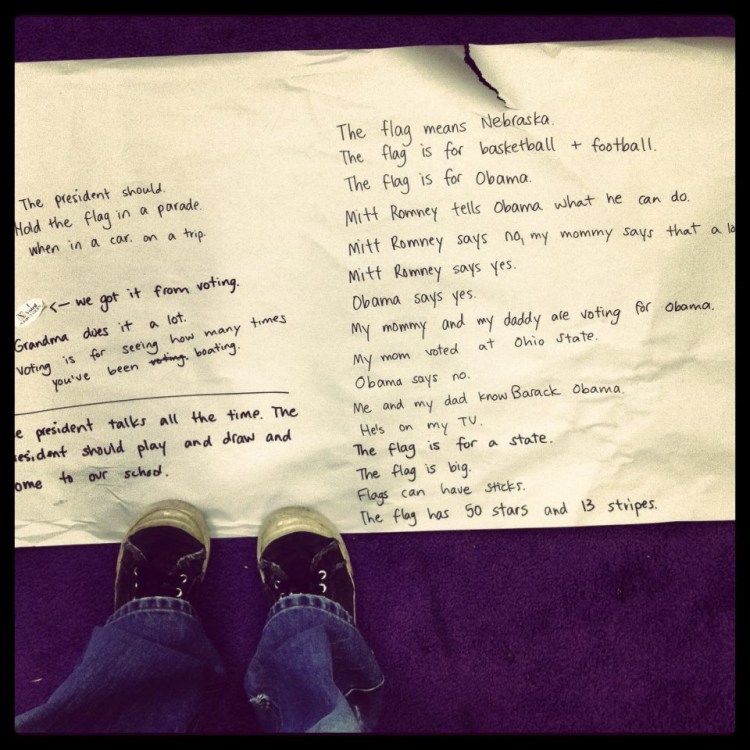 The president should.
Hold the flag in a parade.
when in a car. on a trip.
<— we got it from voting.
Grandma does it a lot.
voting is for seeing how many times
you've been voting. boating.
president talks all the time. The
should play and draw and
to our school.
The flag means Nebraska.
The flag is for basketball + football.
The flag is for Obama.
Mitt Romney tells Obama what he can do.
Mitt Romney says no, my mommy says that a
Mitt Romney says yes.
Obama says yes.
My mommy and my daddy are voting for Obama.
My mom voted at Ohio State.
Obama says no.
Me and my dad know Barack Obama.
He's on my TV.
The flag is for a state.
The flag is big.
Flags can have sticks.
The flag has 50 stars and 13 stripes.